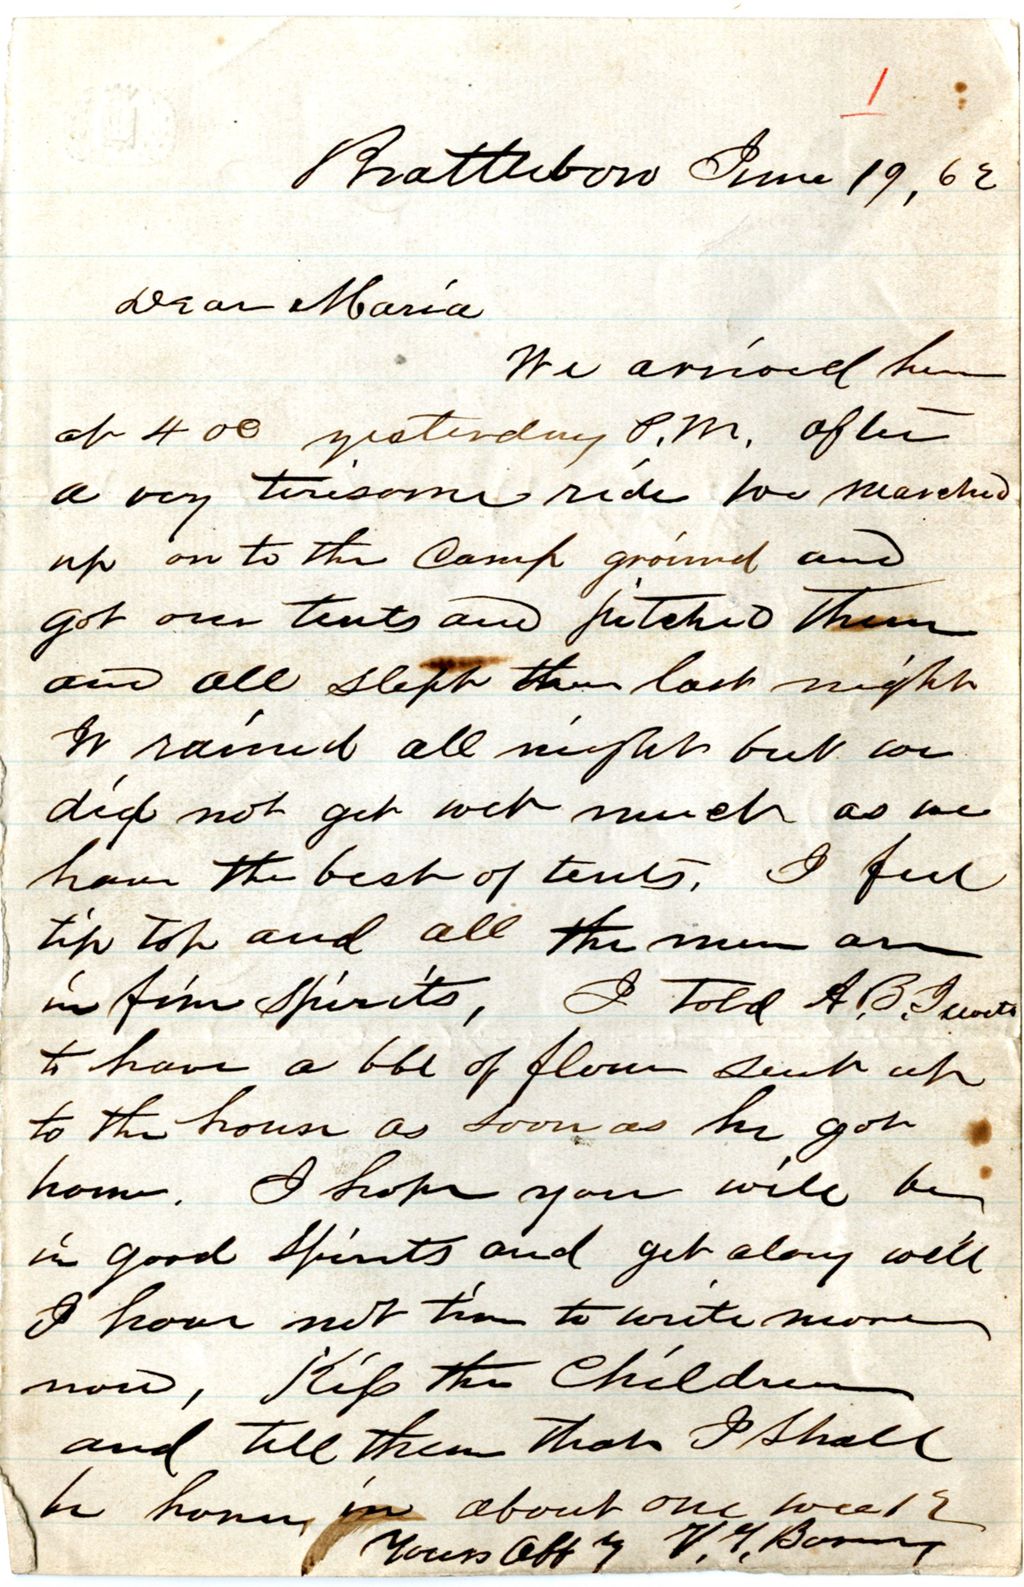 1
Brattleboro June 19, 62
Dear Maria
We arrived here
at 4 00 yesterday P.M. after
a very tiresome ride we marched
up on to the Camp ground and
got our tents and pitched them
and all slept there last night
It rained all night but we
did not get wet much as we
have the best of tents. I feel
tip top and all the men are
in fine spirits, I told A.B. Jewett
to have a bbl of flour sent up
to the house as soon as he got
home. I hope you will be
in good spirits and get along well
I have not time to write more
now, Kiss the Children
and tell them that I shall
be home in about one week
Yours Aff y V. G.